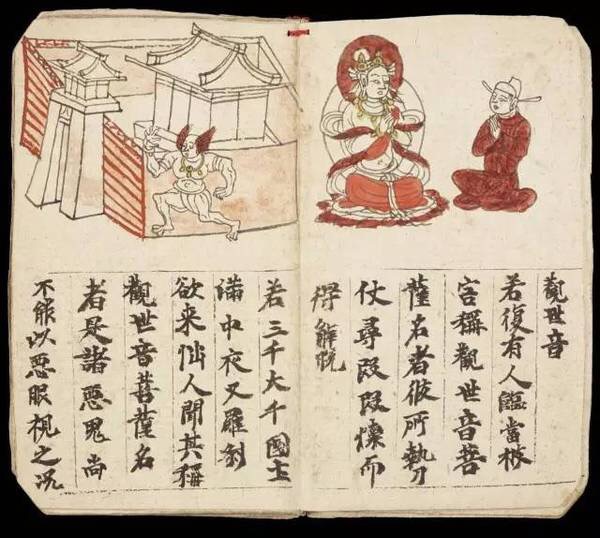 觀世音
若復有人臨當被
害稱觀世音菩
薩名者彼所執刀
仗尋段段懷而
得解脱
若三千大千國土
滿中夜叉羅刹
欲来惱人聞其稱
觀世音菩薩名
者是諸惡鬼尚
不能以惡眼視之況